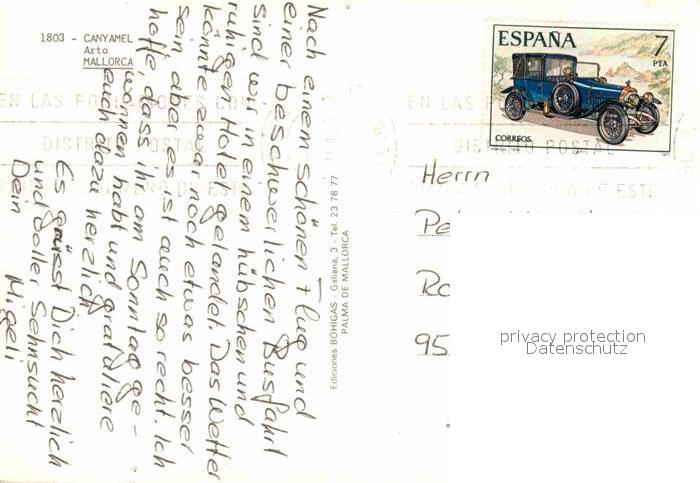 1803 - CANYAMEL
Arta
MALLORCA
Nach einem schönen Flug und
einer beschwerlichen Busfahrt
sind wir in einem hübschen und
ruhigen Hotel gelandet. Das Wetter
könnte zwar noch etwas besser
sein, aber es ist auch so recht. Ich
hoffe, dass ihr am Sonntag ge-
wonnen habt und gratuliere
euch dazu herzlich
Es grüsst Dich herzlich
und voller Sehnsucht
Dein Migeli
Ediciones BOHIGAS - Galiana, 3 - Tel. 23 78 77
PALMA DE MALLORCA
ESPAÑA
7
PTA
CORREOS
EN LAS
DISTRITO POSTAL
DISTRITO POSTAL
DE ESTE
Herrn
Pe
Ro
95
privacy protection
Datenschutz